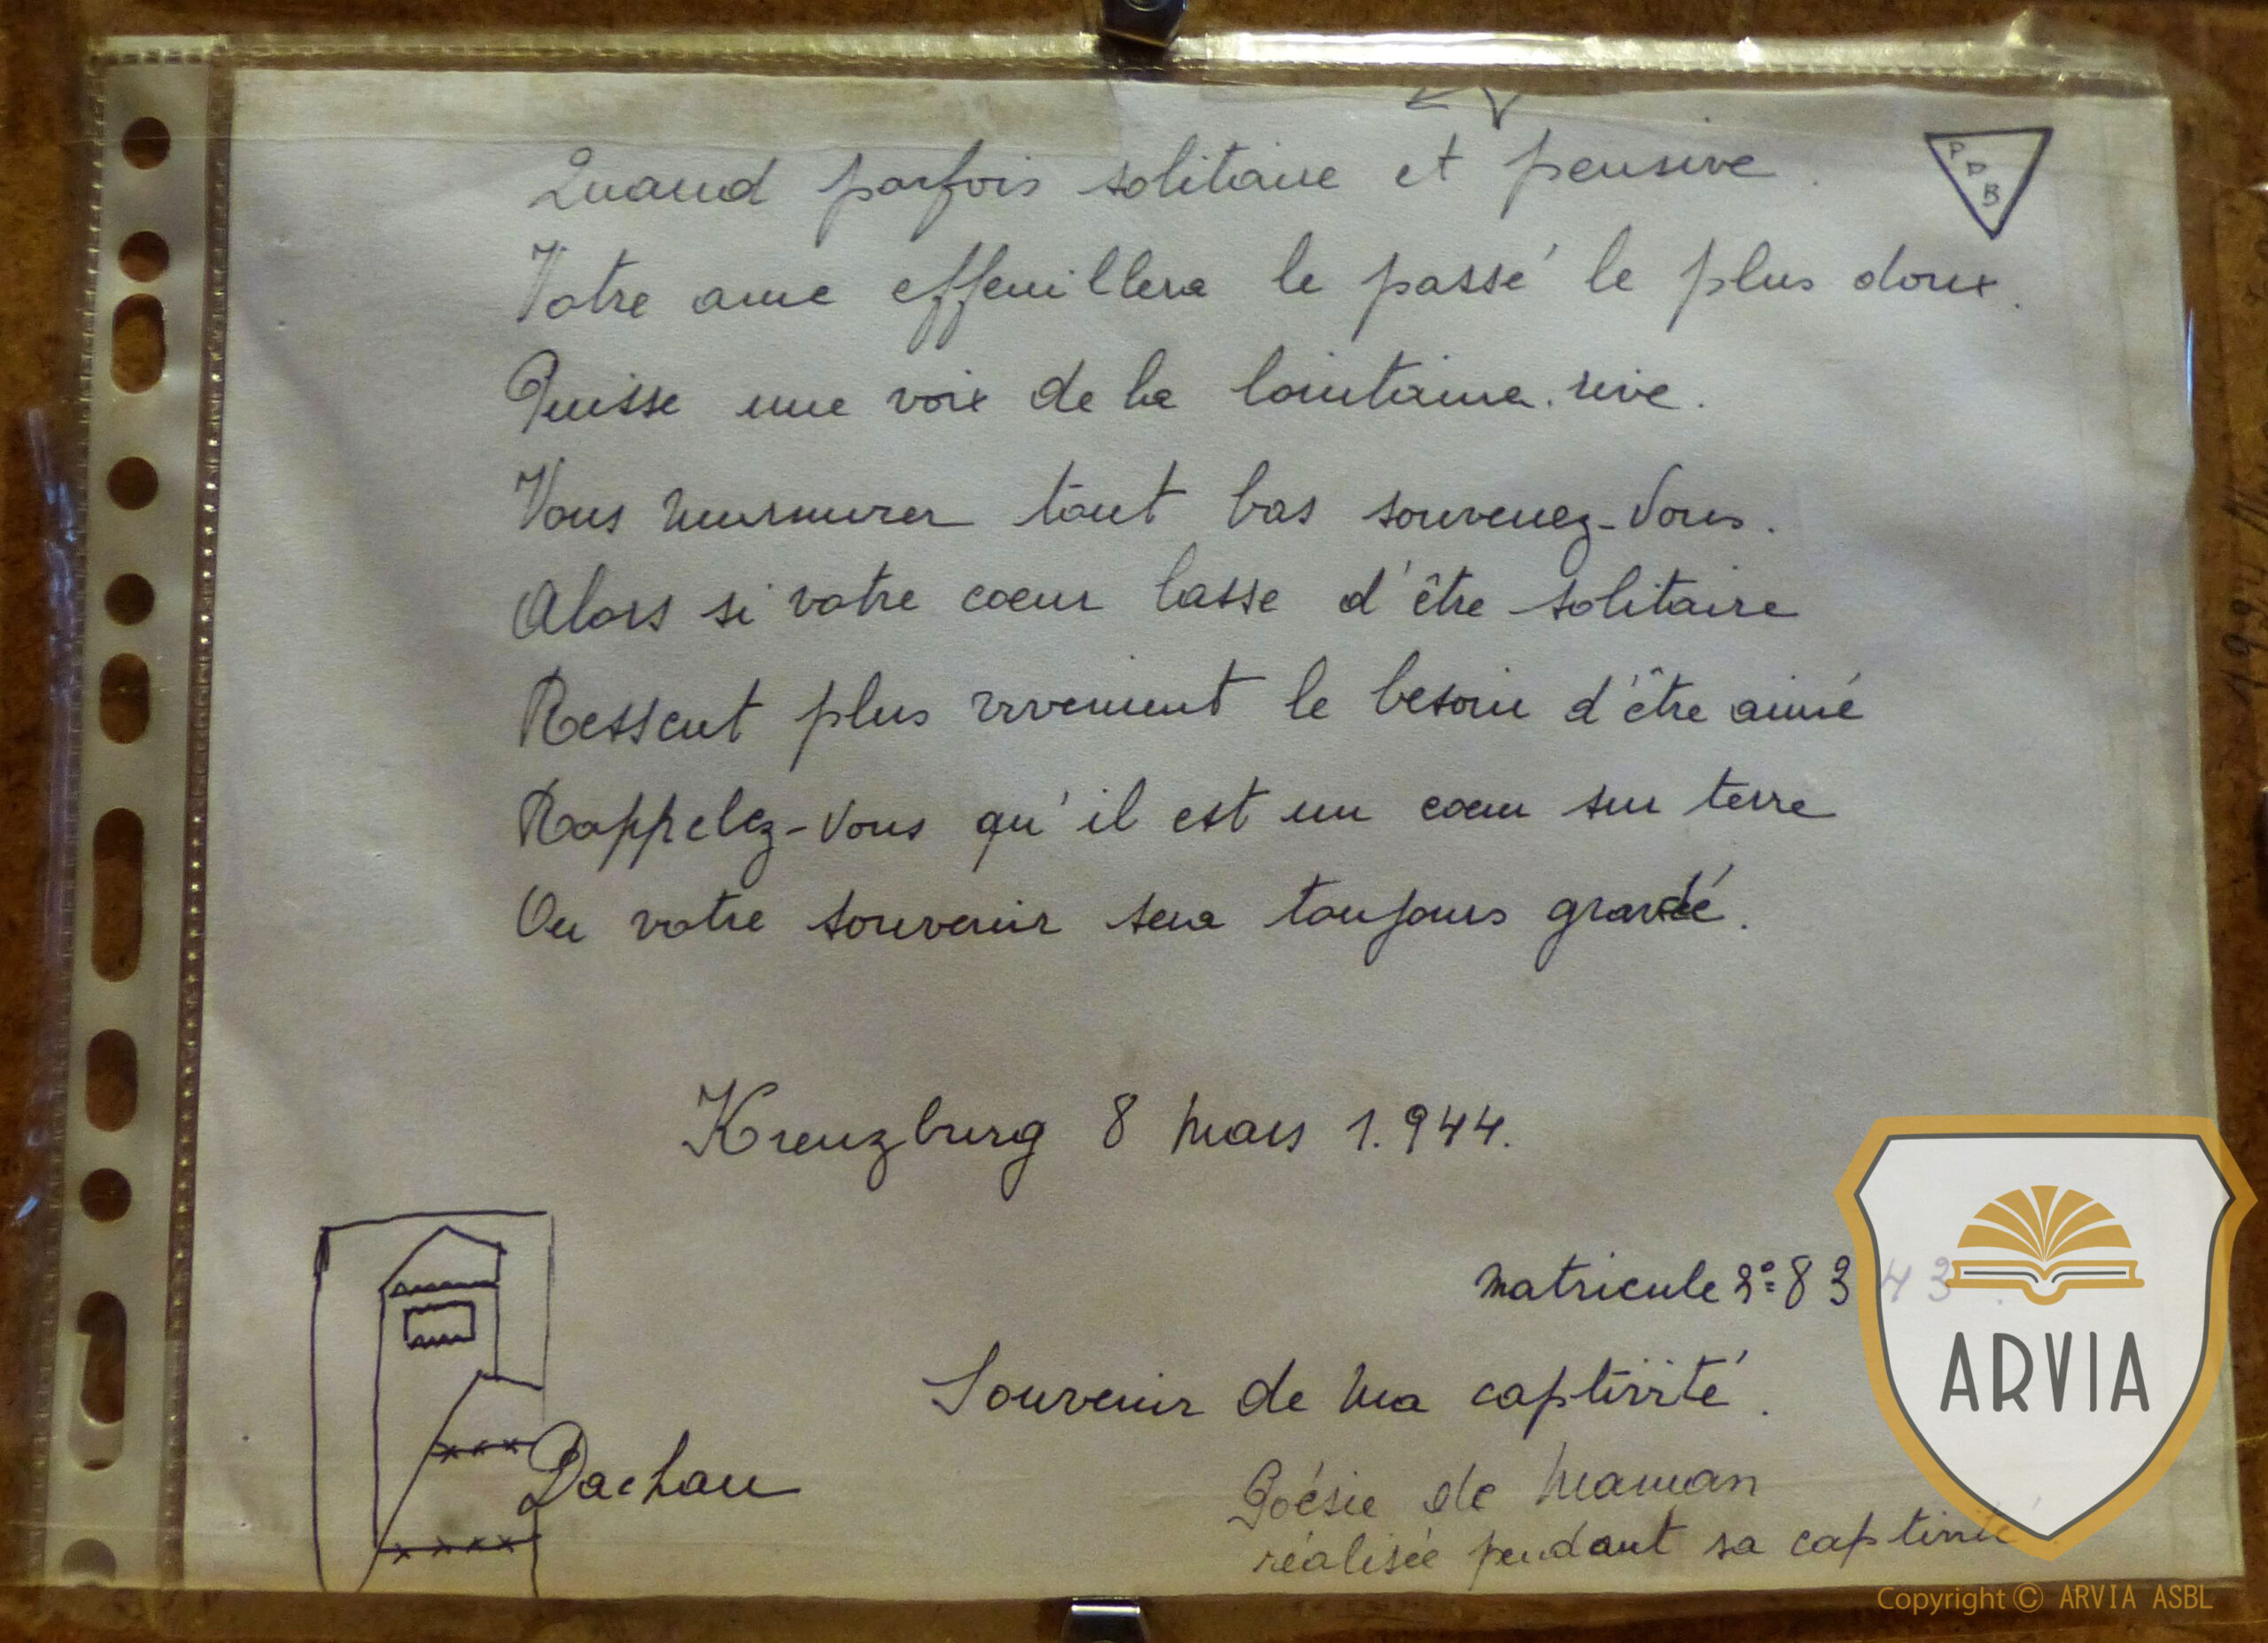 Quand parfois solitaire et pensive.
P
P
B
Votre ame effeuillera le passé le plus doux.
Puisse une voix de la lointaine rive.
Vous murmurer tout bas souvenez-vous.
Alors si votre coeur lasse d'être solitaire
Ressent plus vivement le besoin d'être aimé
Rappelez-vous qu'il est un coeur sur terre
Ou votre souvenir sera toujours gravé.
Kreuzburg 8 Mars 1.944.
Matricule nº 8343.
Souvenir de ma captivité.
Dachau
Poésie de Maman
réalisée pendant sa captivité
ARVIA
Copyright © ARVIA ASBL